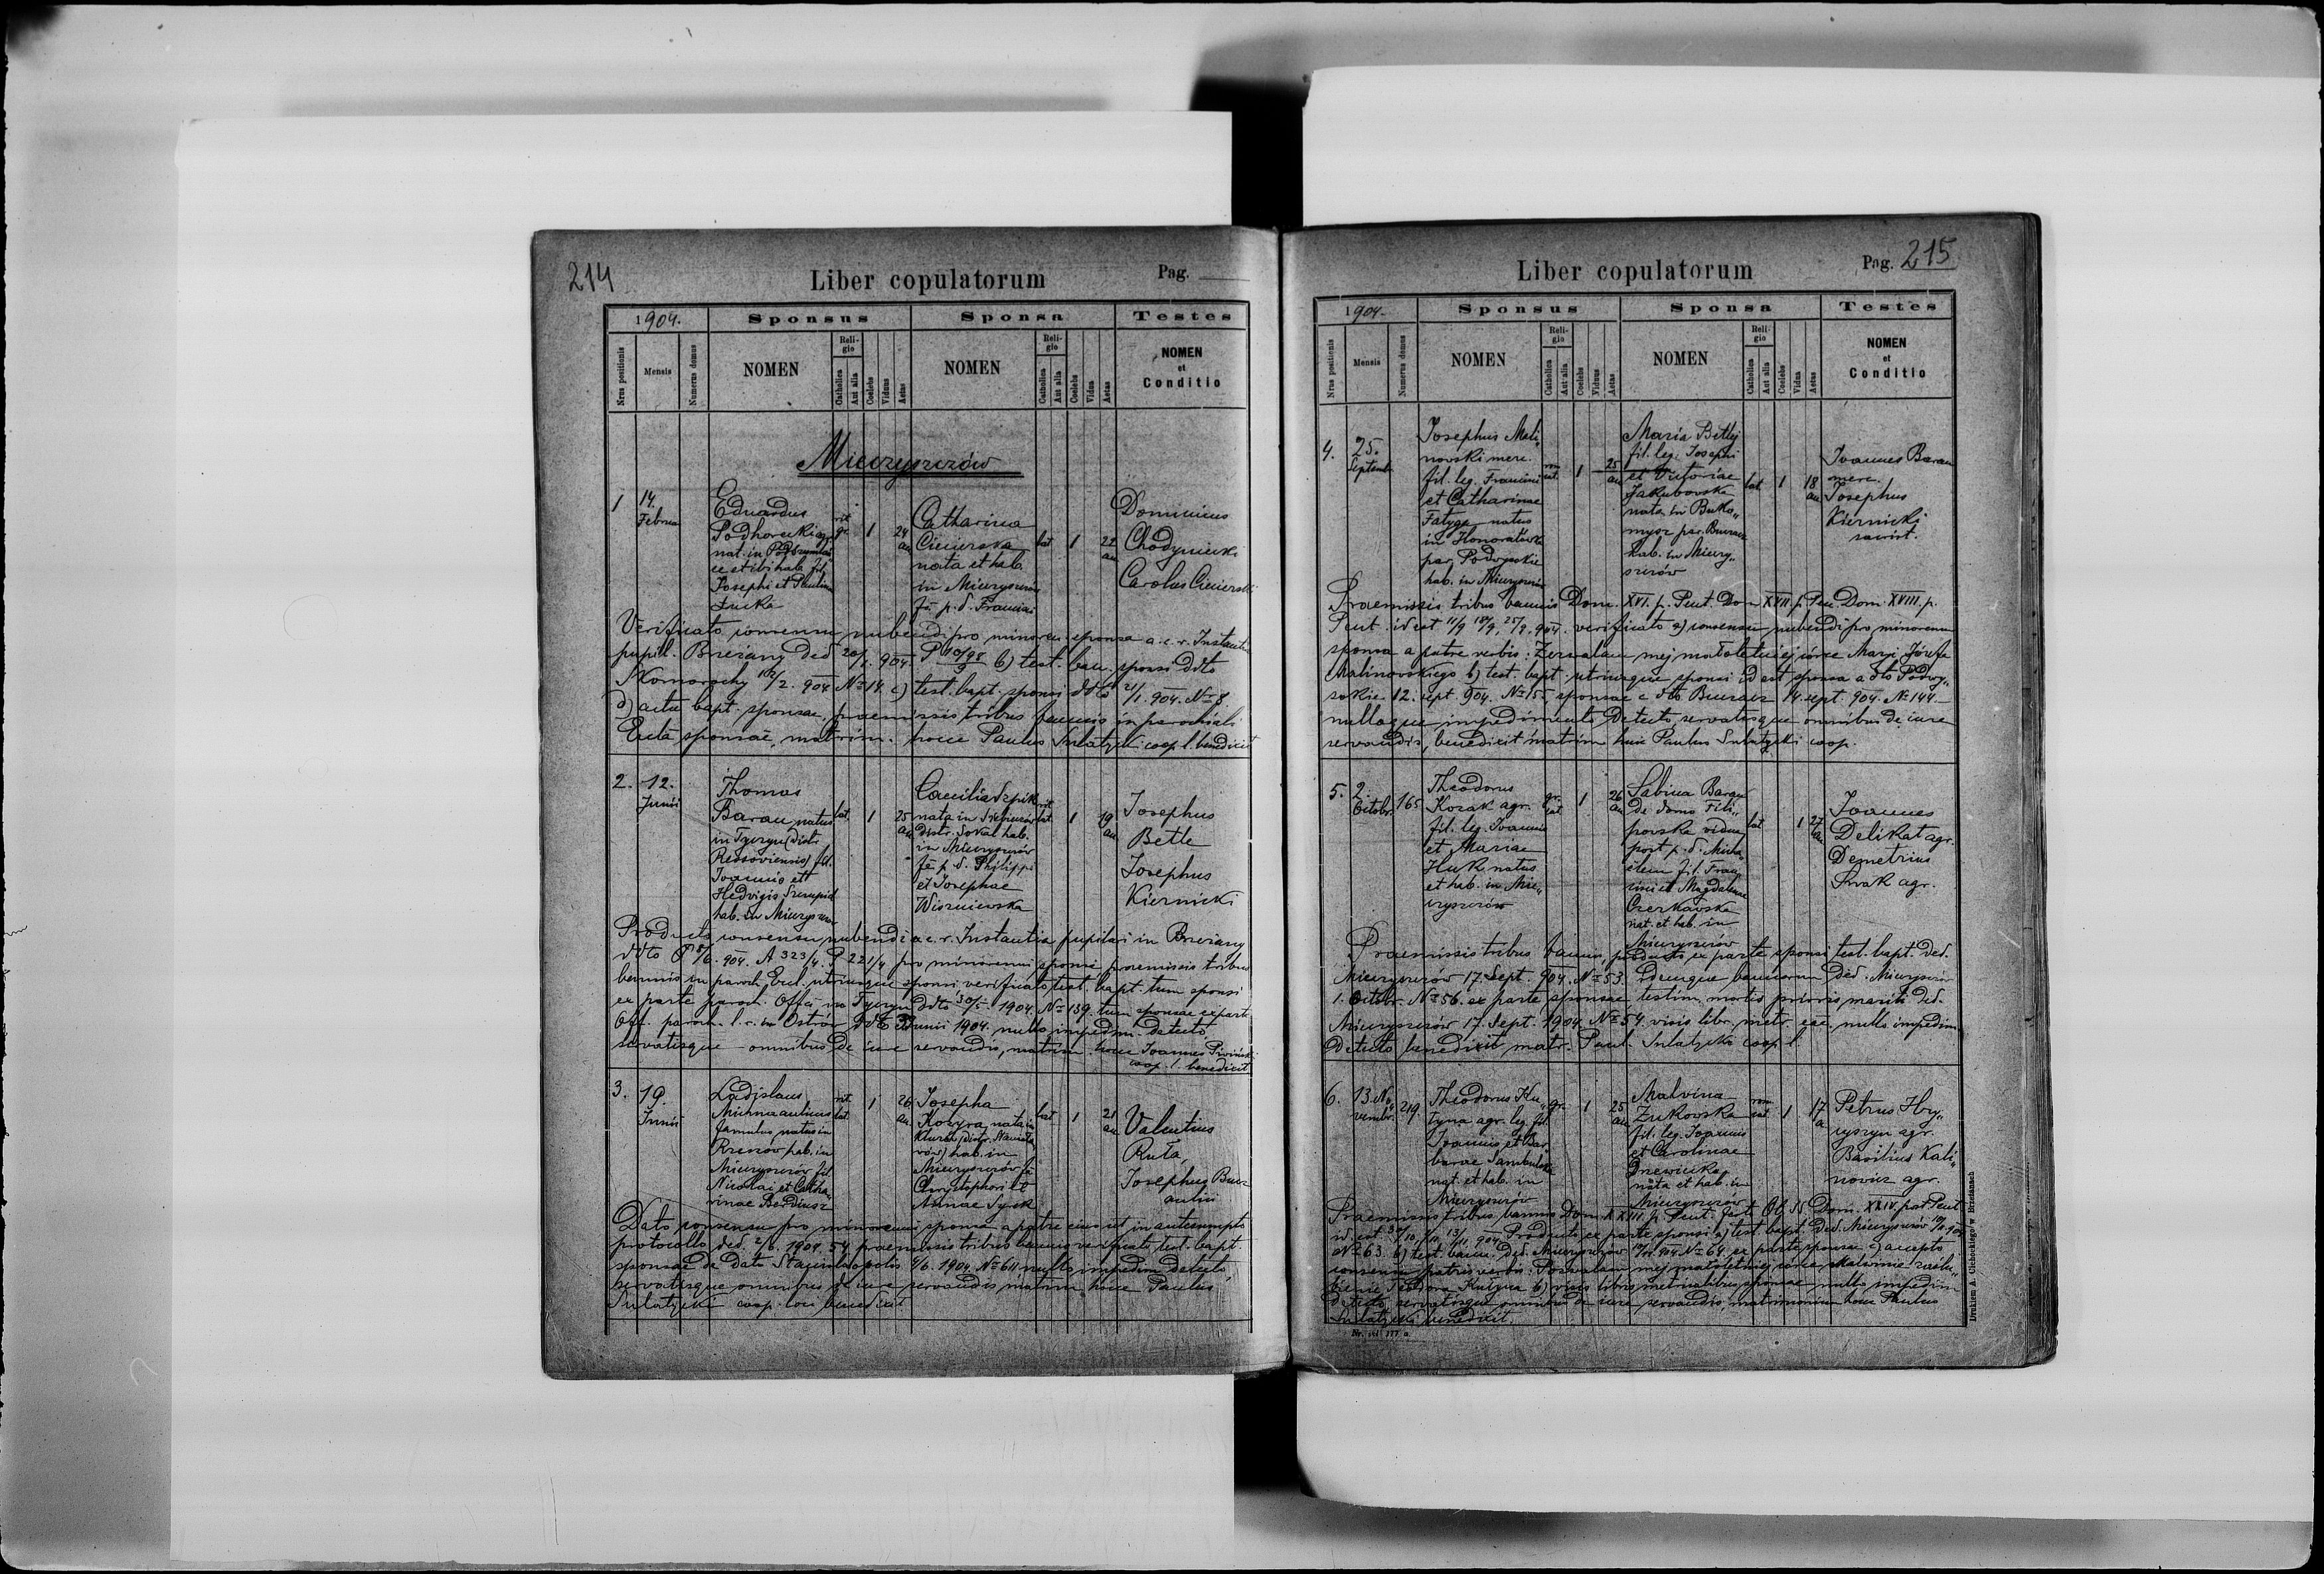 214
Liber copulatorum
Pag.
1904.
Sponsus
Sponsa
Testes
Nrus positionis
Mensis
Numerus domus
NOMEN
Religio
Catholica
Aut alia
Coelebs
Viduus
Aetas
NOMEN
Religio
Catholica
Aut alia
Coelebs
Vidua
Aetas
NOMEN
et
Conditio
Mieczyszczów
1
14.
Februar
Eduardus
Podhorecki agr.
nat. in
et ibi hab. fil.
Josephi et Paulina
Łucka
rit
gr.
1
24
an
Catharina
Cicierska
nata et hab.
in Mieczyszczów
fa p. d. Francisci
lat
1
22
an
Dominicus
Chodyniecki
Carolus Cicierski
Verificato consensu nubendi pro minoren. sponsa a. c. r. Instantia
pupill. Brzeżany Ded 20/1. 904. P 10/98 b) test. bann. sponsi ddto
Skomorochy 12/2. 904 № 14. c) test. bapt. sponsi ddto 21/1. 904. № 8.
d) actu bapt. sponsae, praemissis tribus bannis in parochiali
Eccla sponsae, matrim. hocce Paulus Sulatycki coop. l. benedicit
2.
12.
Junii
Thomas
Baran natus
in Tyczyn (distr.
Ressoviensis) fil.
Joannis et
Hedvigis
hab. in Mieczyszczów
lat.
1
25
an
Caecilia Szpik
nata in
distr. Sokal hab.
in Mieczyszczów
fa p. d. Philippi
et Josephae
Wiszniewska
rit
lat
1
19
an
Josephus
Betle
Josephus
Kiernicki
Producto consensu nubendi a c. r. Instantia pupilari in Brzeżany
ddto 8/6. 904. A 323/4. P 221/4 pro minorenni sponsa praemissis tribus
bannis in paroch. Eccl. utriusque sponsi verificato test. bapt. tum sponsi
ex parte paroch. Offii in Tyczyn ddto 30/5 1904. № 139. tum sponsae ex parte
Off. paroch. l. r. in Ostrów ddto Junii 1904. nullo impedim. detecto
servatisque omnibus de iure servandis, matrim. hocce Joannes
coop. l. benedicit
3.
19.
Junii
Ladislaus
Michna aulicus
famulus natus in
Rzeszów hab. in
Mieczyszczów fil.
Nicolai et Catha„
rinae Bardiusz
rit
lat
1
26
an
Josepha
Kozyra nata in
hab. in
Mieczyszczów fa
Christophori et
Annae Sysk
lat
1
21
an
Valentius
Ruta,
Josephus
Dato consensu pro minorenni sponsa a patre eius ut in autosumpto
protocollo ded. 2/6. 1904. 54 praemissis tribus bannis verificato test. bapt.
sponsae de dato Stanislaopolis 4/6. 1904. № 611 nullo impedim. detecto,
servatisque omnibus de iure servandis matrim. hocce Paulus
Sulatycki coop. loci benedicit
Liber copulatorum
Pag. 215
1904.
Sponsus
Sponsa
Testes
Nrus positionis
Mensis
Numerus domus
NOMEN
Religio
Catholica
Aut alia
Coelebs
Viduus
Aetas
NOMEN
Religio
Catholica
Aut alia
Coelebs
Vidua
Aetas
NOMEN
et
Conditio
4.
25.
Septemb.
Josephus Mali„
nowski merc.
fil. leg. Francisci
et Catharinae
Fatyga natus
in Honoratówka
par. Podwysokie
hab. in Mieczyszczów
rom
cat.
1
25
an
Maria Betlej
fil. leg. Josephi
et Victoriae
Jakubowska
nata in Buko„
myoz par. Bursz.
hab. in Mieczy„
szczów
lat.
1
18
an
Joannes Baran
merc.
Josephus
Kiernicki
sacrist.
Praemissis tribus bannis Dom. XVI. p. Pent. Dom XVII. p. Pen. Dom. XVIII. p.
Pent. id est 11/9 18/9, 25/9. 904. verificato a) consensu nubendi pro minorenni
sponsa a patre verbis: Zezwalam mej małoletniéj córce Maryi Józefa
Malinowskiego b) test. bapt. utriusque sponsi id est sponsa a dto Podwy„
sokie 12. sept. 904. № 15. sponsae c dto Bursz. 14. sept. 904. № 144
nulloque impedimento detecto servatisque omnibus de iure
servandis, benedicit matrim. huic Paulus Sulatycki coop.
5.
2.
Octobr.
165
Theodorus
Kozak agr.
fil. leg. Joannis
et Mariae
Huk natus
et hab. in Mie„
czyszczów
gr.
cat
1
26
an
Sabina Baran
de domo Fili„
powska vidua
post p. d. Micha„
elem fil. Fran„
cisci et Magdalenae
Czerkawska
nat. et hab. in
Mieczyszczów
lat
1
27
a
Joannes
Delikat agr.
Demetrius
Swak agr.
Praemissis tribus bannis, producto ex parte sponsi test. bapt. ded.
Mieczyszczów 17. Sept. 904. № 53. Denique bannorum Ded. Mieczyszczów
1. Octobr. № 56. ex parte sponsae testim. mortis prioris mariti ded.
Mieczyszczów 17. Sept. 1904. № 54. visis libr. metr. ecc. nullo impedim
detecto benedixit matr. Paul. Sulatycki coop. l.
6.
13. No„
vembr.
219
Theodorus Ku„
tyna agr. leg. fil.
Joannis et Bar„
barae Sambulska
nat. et hab. in
Mieczyszczów
gr.
1
25
an
Malvina
Żukowska
fil. leg. Joannis
et Carolinae
Drzewicka
nata et hab. in
Mieczyszczów
rom
cat
1
17
a
Petrus Hry„
cyszyn agr.
Basilius Kali„
nowicz agr.
Praemissis tribus bannis Dom. XXIII p. Pent. fest. Ob. SS Dom. XXIV. post Pent
id. est. 30/10, 1/11, 13/11. 904. Producto ex parte sponsi a) test. bapt. Ded. Mieczyszczów
№ 63. b) test. bann. Ded. Mieczyszczów № 64. ex parte sponsae c) accepto
consensu patris verbis: Pozwalam mej małoletniej córce Malwinie
Teodora Kutyna d) visis libris metricalibus sponsae nullo impedim
detecto servatisque omnibus de iure servandis matrimonium hocce Paulus
Sulatycki benedicit.
Drukiem A. Cichockiego w Brzeżanach